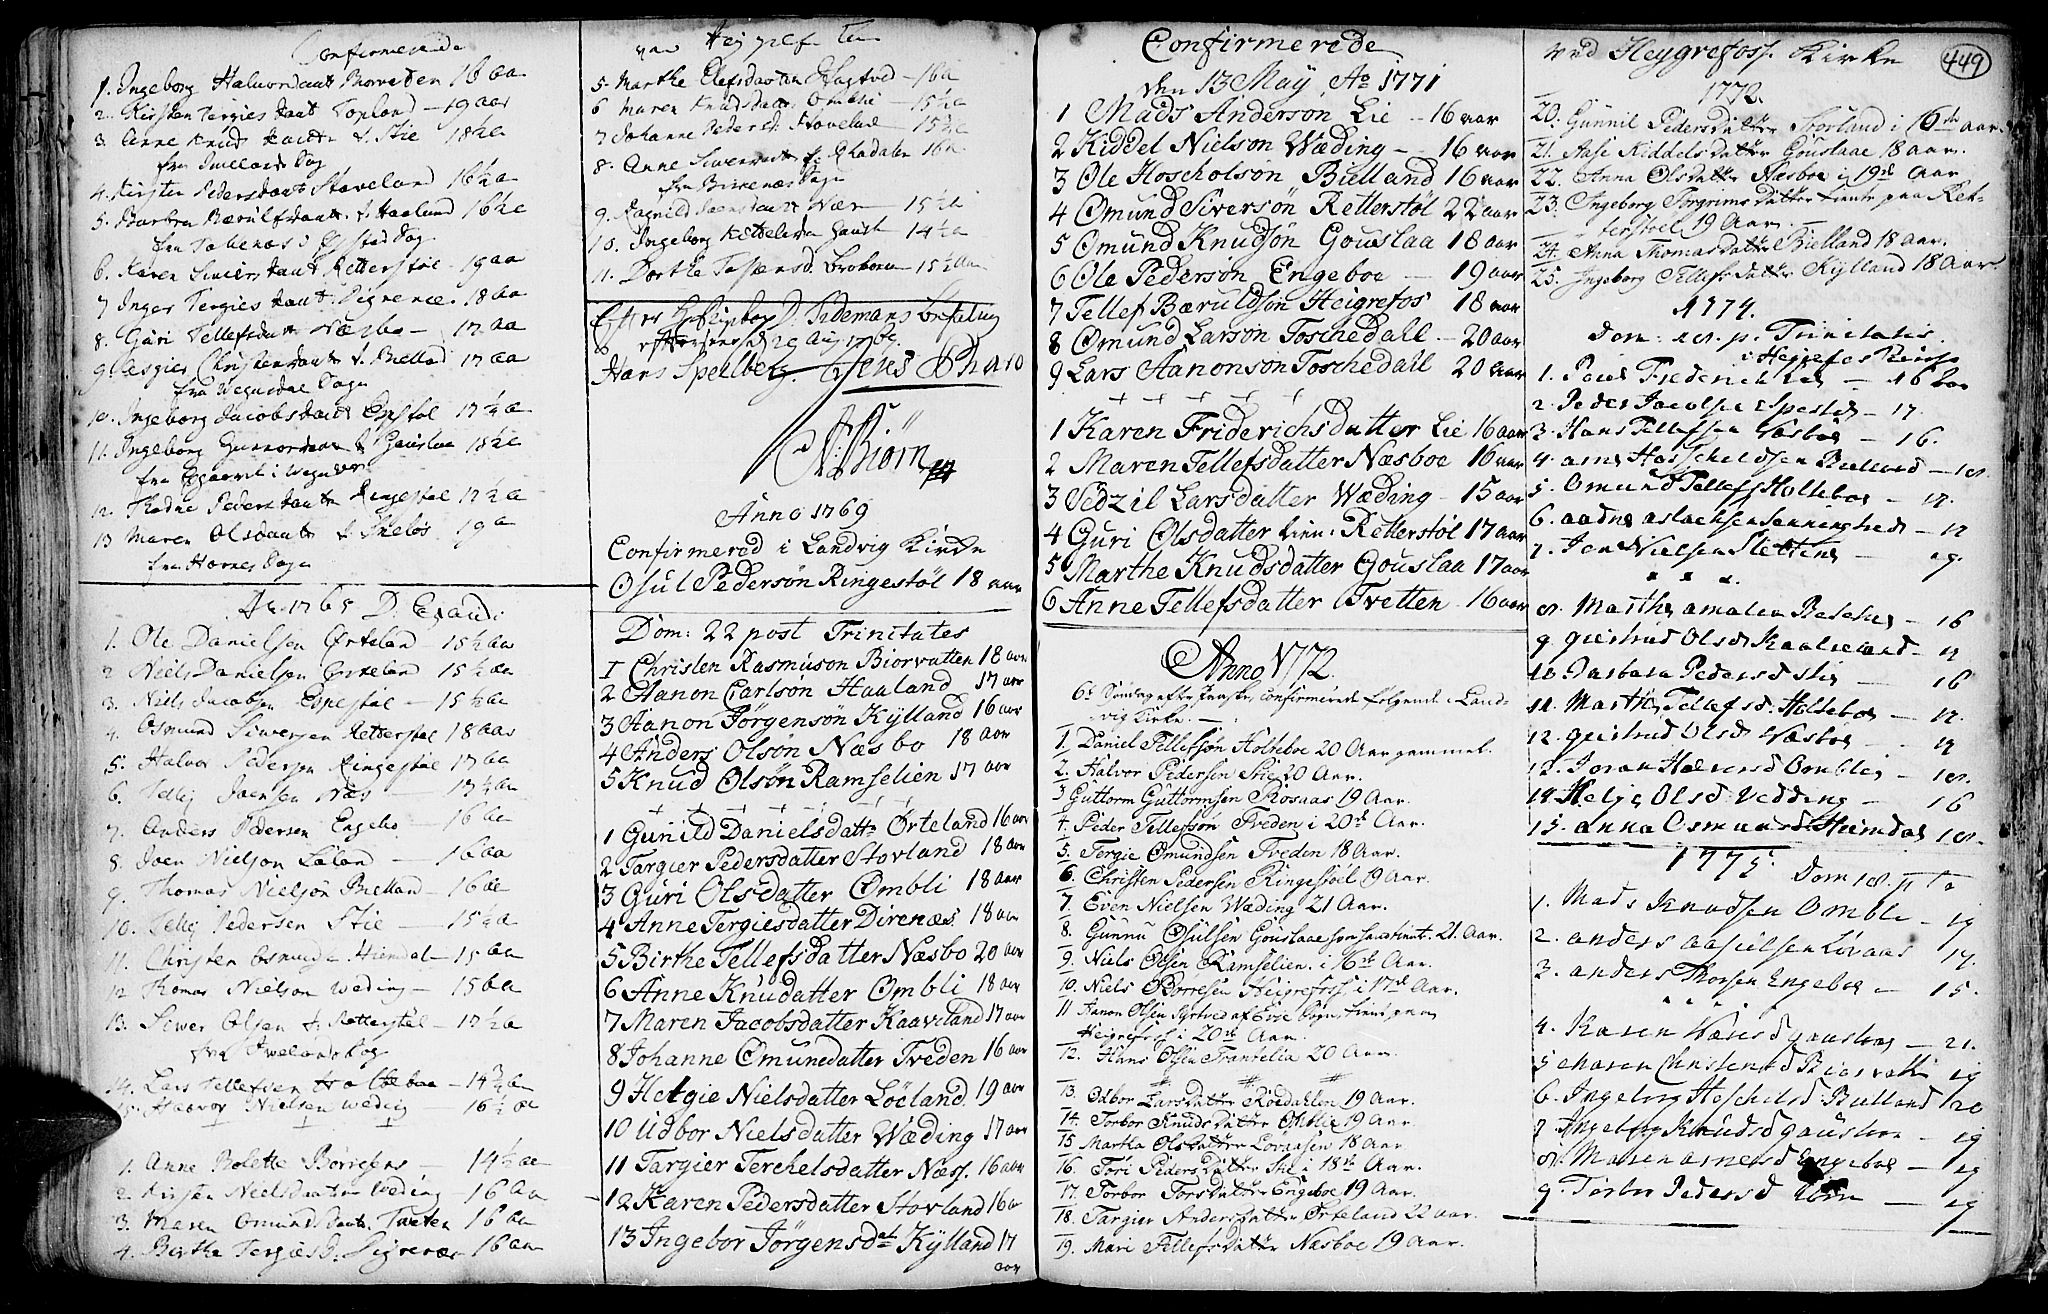 Confirmerede
1. Ingeborg Halvordaut Borvaten 16 aa
2. Kirsten Tergies daut Topland — 19 aar
3. Anne Knuds dautt. Stie 18½ e
fra Sogn
4. Kirsten Peders daut Staveland 16½ a
5. Haaland 16½ e
Sogn
6. Karen Siwers daut Retterstøl — 19 aa
7 Inger Tergies daut. 18 aa
8. Guri Tellefsdaut Næsbo — 17 aa
9. Christendaut Bielland 17 aa
fra Sogn
10. Ingeborg Jacobsdaut Espstøl 17½ a
11. Ingeborg Gunnordaut Gauslae 18½ e
fra
12. Peders daut Ringestøl 17½ a
13 Maren Olsdaut 19 a
fra Hornes Sogn
Ao 1765 D. Exaudi
1. Ole Danielsen Ørteland — 15½ aa
2 Niels Danielsen Ørteland 15½ aa
3. Niels Jacobsen Espestøl — 15½ a
4. Osmund Siwersen Retterstøl 18 aar
5. Halvor Pedersen Ringestøl 17 aa
6. Tellef Joensen Næs — 17½ aa
7. Anders Pedersen Engebo — 16 aa
8. Joen Nielsøn Løland — 16 aa
9. Thomas Nielsøn Bielland — 16 aa
10. Tellef Pedersen Stie — 15½ a
11. Christen Osmunds. Hiemdal — 15 aa
12 Thomas Nielsøn Weding — 15 aa
13. Siwer Olsen Retterstøl — 17½ a
fra Iwelands Sog
14. Lars Tellefsen Holteboe — 14¾ a
15. Haavor Nielsen Weding 16½ ae
1. Anne Bolette Børresens — 14½ aa
2. Kirsten Nielsdaatter Weding — 16 aa
3. Maren Omunds daut. Tveten 16 aa
4. Birthe Tergies D. 16 aa
5. Marthe Elefsdatter — 16 a
6 Maren Knudsdaut Omblie — 15½ a
7 Johanne Peders D. Stoveland 15¾ e
8. Anne 16 a
fra Birkenæs Sogn
9. Ragnild Joensdaut Næs — 15½ e
10. Ingeborg Gaust — 14½ a
11. Dorthe 15½ aa
Efter D. Tidemans befaling
efterseet d. 20 Aug 1769.
Hans Spelberg. Jens Schard
N: Biørn
Anno 1769
Confirmered i Landvig Kirke
Osul Pedersøn Ringestøl 18 aar
Dom: 22 post Trinitates
1 Christen Rasmuson Biorvatten 18 aar
2 Hanon Carlsøn Haaland 17 aar
3 Aanon Jørgensøn Kylland 16 aar
4 Anders Olsøn Næsbo 18 aar
5 Knud Olsøn Ramselien 17 aar
1 Gunild Danielsdattr Ørteland 16 aar
2 Targier Pedersdatter Stovland 18 aar
3 Guri Olsdatter Ombli 18 aar
4 Anne Tergiesdatter Direnæs 18 aar
5 Birthe Tellefsdatter Næsbo 20 aar
6 Anne Knudatter Ombli 18 aar
7 Maren Jacobsdatter Kaaveland 17 aar
8 Johanne Omunsdatter Tveden 16 aar
9 Helgie Nielsdatter Løeland 19 aar
10 Udbor Nielsdatter Wæding 17 aar
11 Targier Terchelsdatter Næss. 16 aar
12 Karen Pedersdatter Stovland 16 a
13 Ingebor Jørgensdat Kylland 17
aar
Confirmerede
den 13 May, Ao 1771
1 Mads Anderson Lie — 16 aar
2 Kiddel Nielson Wæding — 16 aar
3 Ole Hoscholsøn Bielland 16 aar
4 Omund Siversøn Retterstøl 22 aar
5 Omund Knudsøn Gouslaa 18 aar
6 Ole Pedersøn Engeboe — 19 aar
7 Tellef Bæruldsøn Heigrefos 18 aar
8 Omund Larsøn Toschedall — 20 aar
9 Lars Aanonsøn Toschedall 20 aar
1 Karen Friderichsdatter Lie 16 aar
2 Maren Tellefsdatter Næsboe 16 aar
3 Sedzil Larsdatter Wæding — 15 aar
4 Guri Olsdatter tien: Retterstøl 17 aar
5 Marthe Knudsdatter Gouslaa 17 aar
6 Anne Tellefsdatter Tvetten — 16 aar
Anno 1772.
6t Søndag efter Paaske confirmerede følgende i Land-
vig Kirke. —
1. Daniel Tellefsøn Holteboe 20 Aar gammel.
2. Halvor Pedersen Stie 20 Aar.
3 Guttorm Guttormsen Rosaas 19 Aar.
4. Peder Tellefsøn Tveden i 20de Aar.
5. Tergie Omundsen Tveden 18 Aar.
6. Christen Pedersen Ringestøil 19 Aar.
7. Even Nielsen Wæding 21 Aar.
8. Gunnu Osulsen Gouslaae 21. Aar.
9. Niels Olsen Ramselien. i 16de Aar.
10. Niels Børresen Heigrefoss. i 17de Aar.
11 Aanon Olsen Syrtved af Evie Sogn, tiente paa
Heigrefoss i 20de Aar.
12. Hans Olsen Trantelia 20 Aar.
13. Odbor Larsdatter Rosdahlen 19 Aar.
14. Torbor Knudsdatter Omblie 19 Aar.
15 Martha Olsdatter Lovaasen 18 Aar
16. Tori Pedersdatter Stie i 18de Aar.
17. Torbor Torsdatter Engeboe 19 Aar.
18. Targier Andersdatter Ørteland 22 aar.
19. Mari Tellefsdatter Næsboe 19 Aar.
ved Heygrefoss. Kirke
449
1772.
20. Gunnil Pedersdatter Storland i 16de Aar.
21. Aase Kiddelsdatter Gouslaae 18 aar.
22. Anna Olsdatter Næsboe i 19de Aar
23. Ingeborg Torgrimsdatter tiente paa Ret-
terstoel 19 Aar. —
24. Anna Thomasdatter Bielland 18 aar.
25. Ingeborg Tellefsdatter Kylland 18 Aar.
1774.
Dom: 18. p. Trinitatis.
i Heygrefos Kirke
1. Poul Frederich Lie — 16 Aar
2. Peder Jacobsen Espestøl — 17.
3. Hans Tellefsen Næsboe — 16.
4. Arne Hoscheldsen Bielland — 18.
5. Omund Tellefs Holteboe — 17.
6. Aadne Aslachsen — 17
7. Jens Nielsen — 19.
8. Marthe Amalia — 16
9 Giertrud Olsd Kaaleland — 19
10. Barbara Pedersd Stie — 16
11. Marthe Tellefsd. Holteboe — 17.
12. Giertrud Olsd Næsboe — 19
13. Joran Halvorsd Omblie — 18.
14. Helje Olsd. Vedding — 16
15. Anna Osmundsd. Heimdal 18.
1775. Dom 18. p Tr
1. Mads Knudsen Omble — 19
2. Anders Aasulsen Lovaas 17.
3. Anders Thorsen Engeboe — 15.
4. Karen — 21.
5 Maren Christensd Biorvatn 19
6. Ingeborg Hoschelsd Bielland 20
7. Ingeborg Knudsd Gauslaae — 19
8. Maren Arnesd Engeboe — 19
9. Torbor Pedersd — 19